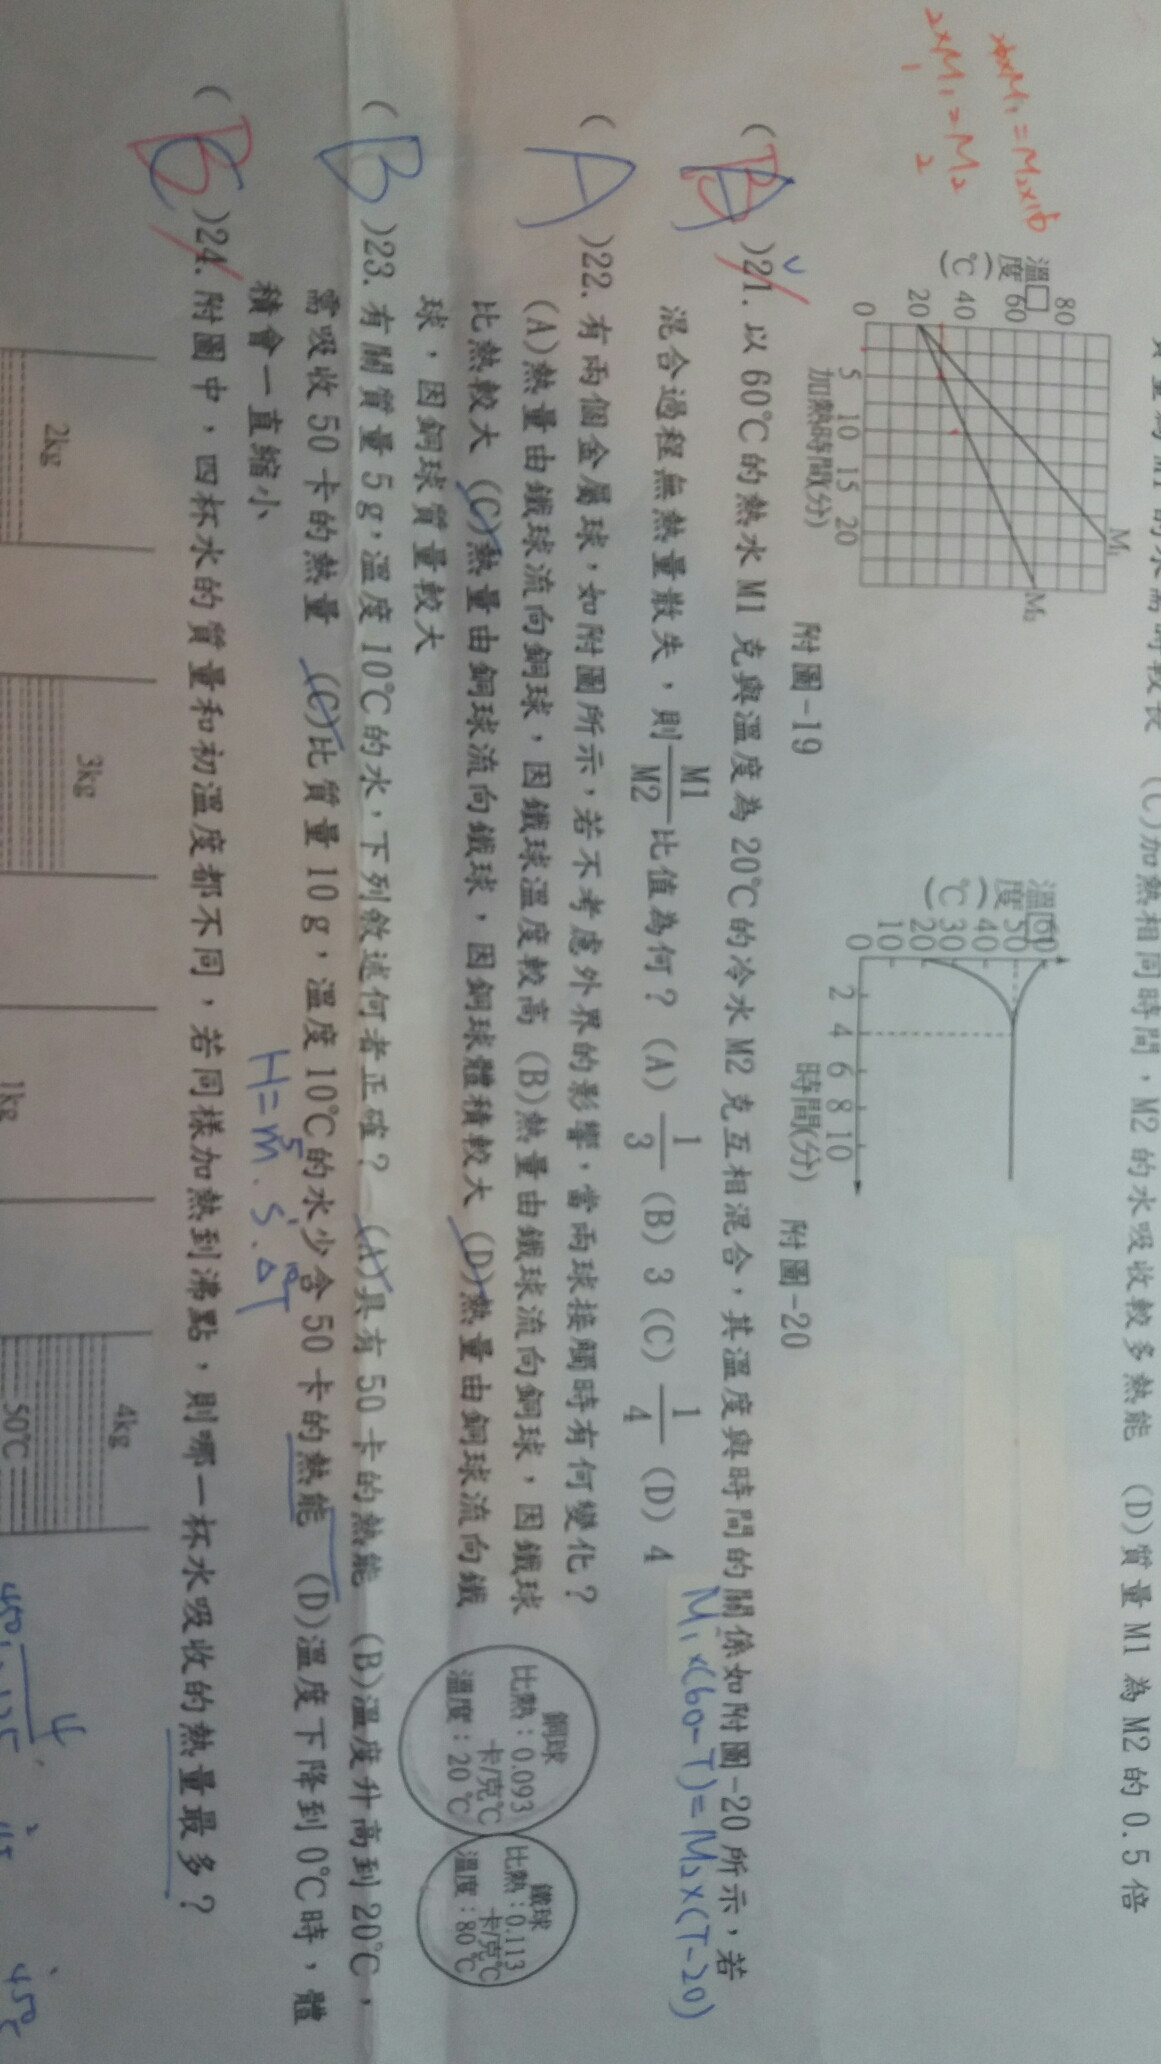 (C)加熱相同時間，M2的水吸收較多熱能 (D)質量M1為M2的0.5倍
溫度(℃)
80
60
40
20
0
5 10 15 20
加熱時間(分)
M₁
M₂
附圖-19
溫度(℃)
60
50
40
30
20
10
0
2 4 6 8 10
時間(分)
附圖-20
2×M₁=M₂
1 2
( B )21. 以60℃的熱水M1克與溫度為20℃的冷水M2克互相混合，其溫度與時間的關係如附圖-20所示，若
混合過程無熱量散失，則M1/M2比值為何？ (A) 1/3 (B) 3 (C) 1/4 (D) 4
M₁×(60-T)=M₂×(T-20)
( A )22. 有兩個金屬球，如附圖所示，若不考慮外界的影響，當兩球接觸時有何變化？
(A)熱量由鐵球流向銅球，因鐵球溫度較高 (B)熱量由鐵球流向銅球，因鐵球
比熱較大 (C)熱量由銅球流向鐵球，因銅球體積較大 (D)熱量由銅球流向鐵
球，因銅球質量較大
銅球
比熱：0.093
卡/克℃
溫度：20℃
鐵球
比熱：0.113
卡/克℃
溫度：80℃
( B )23. 有關質量5g，溫度10℃的水，下列敘述何者正確？ (A)具有50卡的熱能 (B)溫度升高到20℃，
需吸收50卡的熱量 (C)比質量10g，溫度10℃的水少含50卡的熱能 (D)溫度下降到0℃時，體
積會一直縮小
H=m·s·ΔT
( B )24. 附圖中，四杯水的質量和初溫度都不同，若同樣加熱到沸點，則哪一杯水吸收的熱量最多？
2kg
3kg
1kg
4kg
50℃